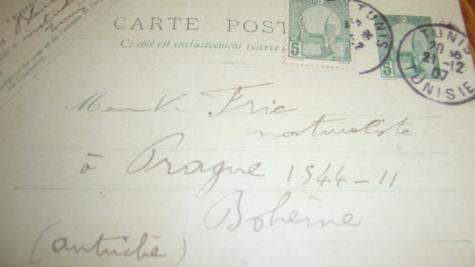 CARTE POST
Ce côté est exclusivement réservé
5
5
TUNIS
TUNIS
20
21-12
07
TUNISIE
Mons V. Fric
naturaliste
à Prague 1544-11
Bohème
(autriche)